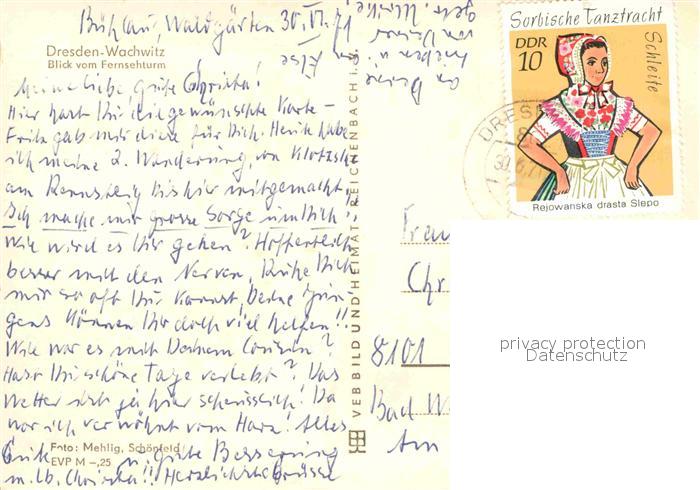 Bühlau, Waldgärten 30.VI.71
Dresden-Wachwitz
Blick vom Fernsehturm
Meine liebe gute Christa!
Hier hast Du die gewünschte Karte –
Fritz gab mir diese für Dich. Heute habe
ich meine 2. Wanderung, von Klotzsche
am Rennsteig bis hier mitgemacht!
Ich mache mir grosse Sorge um Dich!
Wie wird es Dir gehen? Hoffentlich
besser mit den Nerven. Ruhe Dich
nur so oft Du kannst, Deine Jun-
gens können Dir doch viel helfen!!
Wie war es mit Deinem Cousin?
Hast Du schöne Tage verlebt? Das
Wetter ist ja hier scheusslich! Da
war ich verwöhnt vom Harz! Alles
Gute u. gute Besserung
m. lb. Christa!! Herzlichste Grüsse
Foto: Mehlig, Schönfeld
EVP M –,25
von Else
VEB BILD UND HEIMAT REICHENBACH i. V.
Sorbische Tanztracht
DDR
10
Schleife
Rejowanska drasta Slepo
DRESD
30.6.71
Frau
Chr
8101
Bad W
Am
privacy protection
Datenschutz